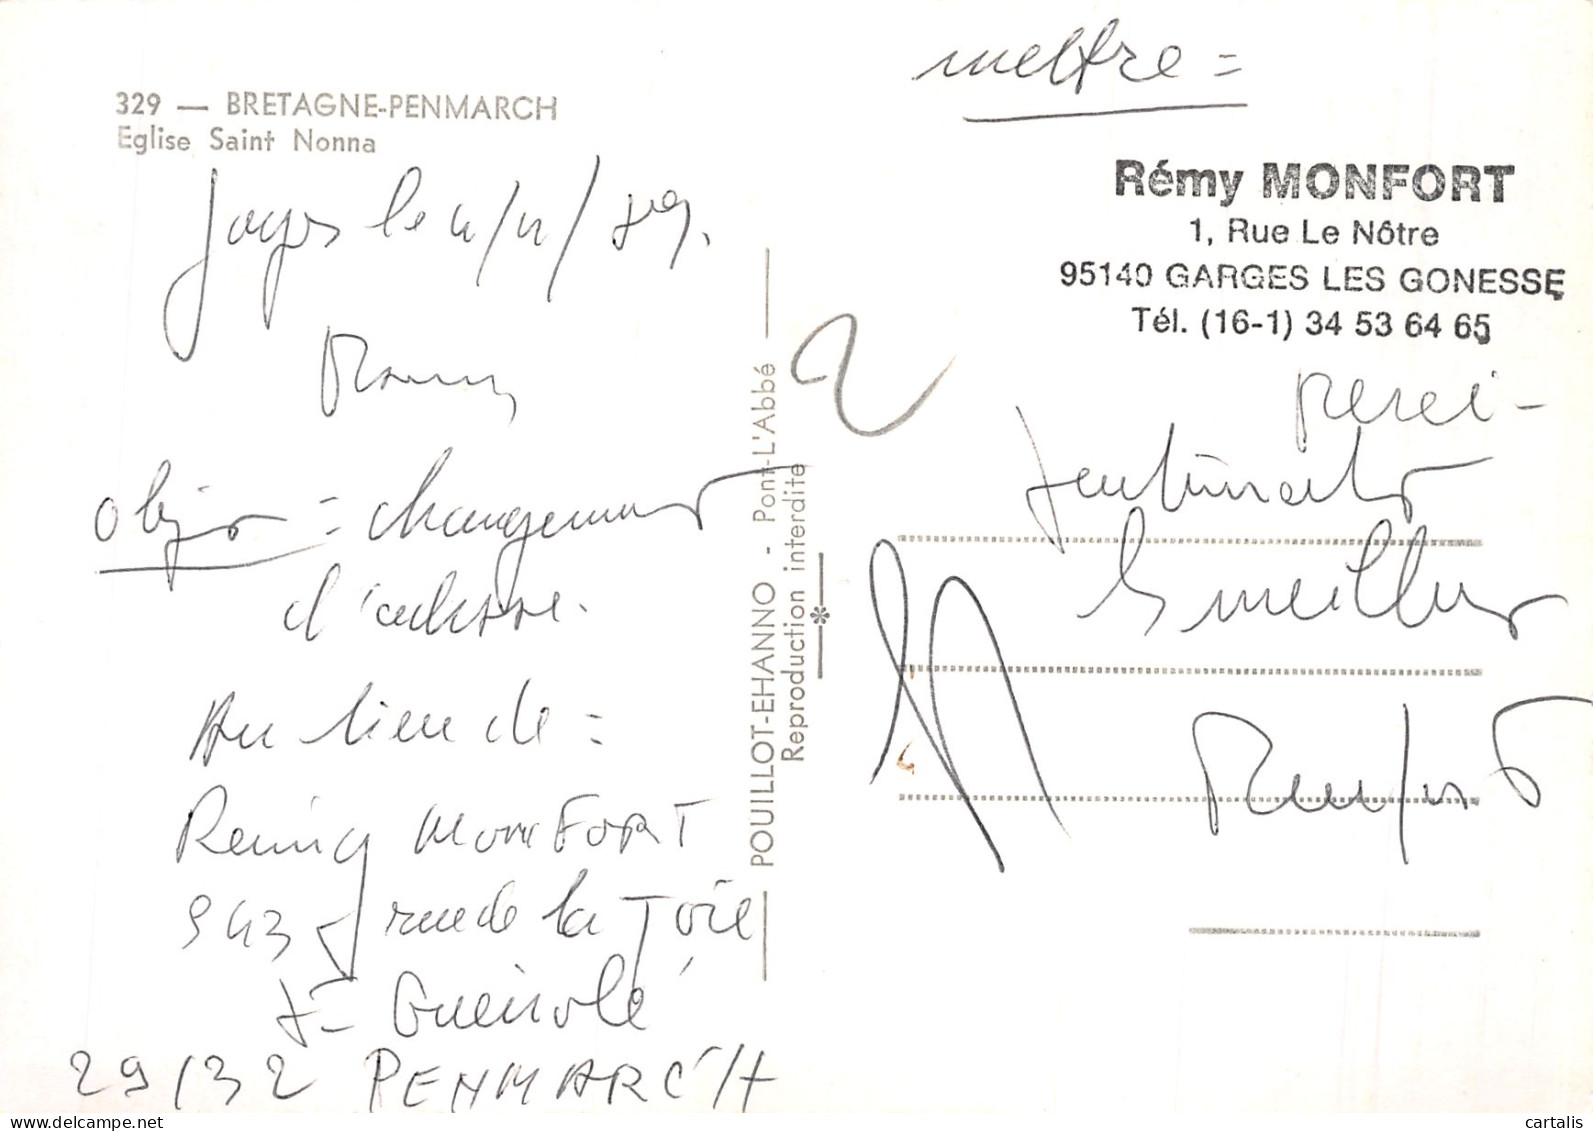 329 — BRETAGNE-PENMARCH
Eglise Saint Nonna
le 11/11/89.
Objet = changement
d'adresse.
Au lieu de =
Remy MONFORT
943 rue de la Joie
St Guénolé
29132 PENMARC'H
POUILLOT-EHANNO - Pont-L'Abbé
Reproduction interdite
mettre =
Rémy MONFORT
1, Rue Le Nôtre
95140 GARGES LES GONESSE
Tél. (16-1) 34 53 64 65
2
merci -
sentiments
les meilleurs
www.delcampe.net
cartalis